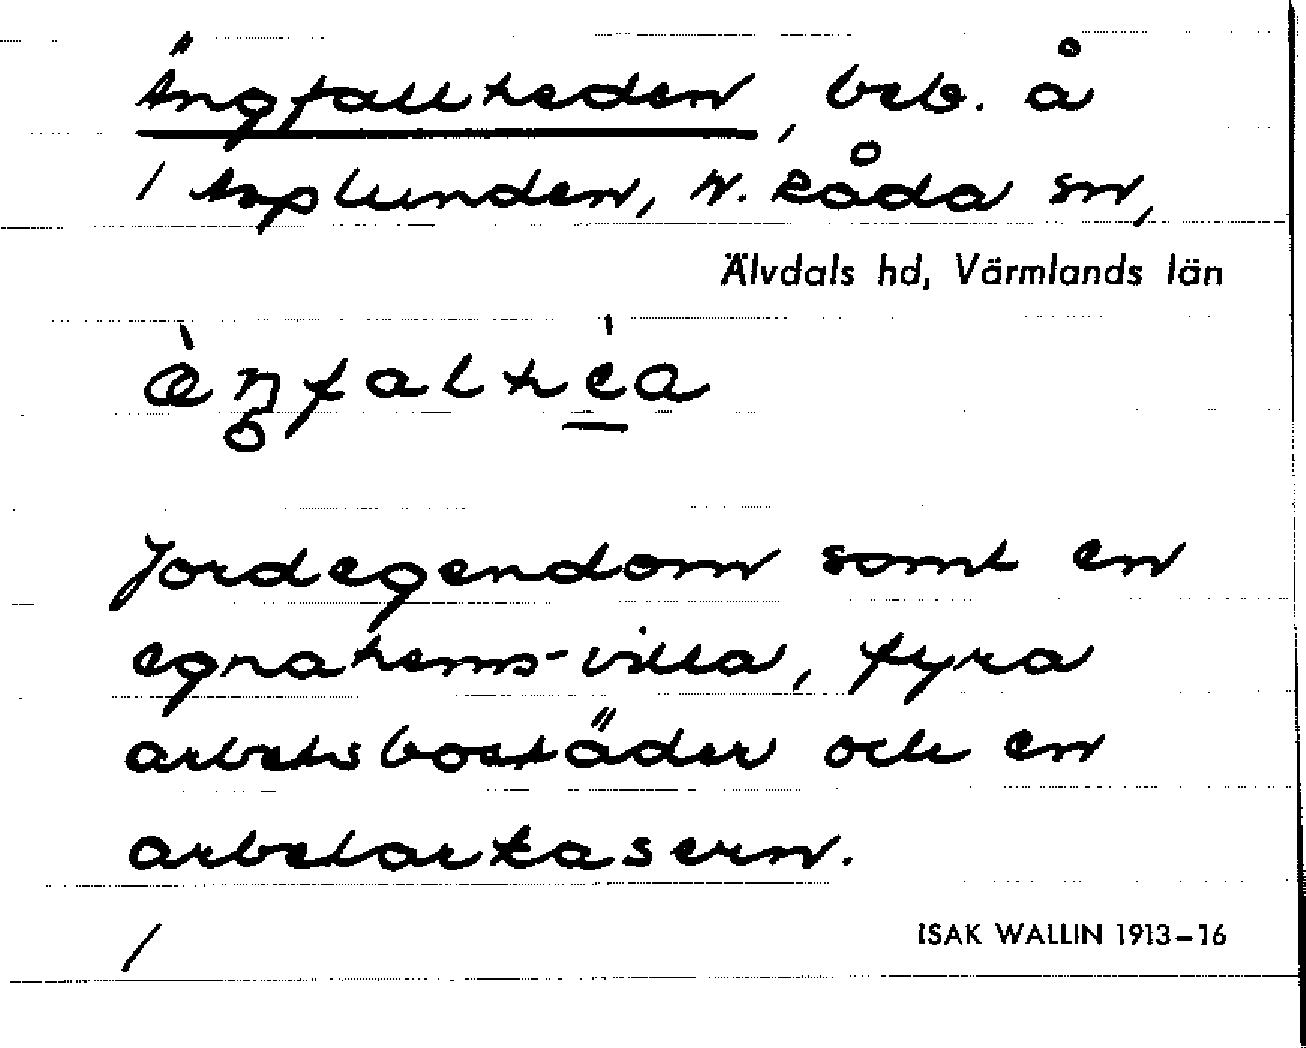 Ängfallheden, beb. å
1 Asplunden, N. Råda sn,
Älvdals hd, Värmlands län
æ̀ŋ̥falhé̱a
Jordegendom samt en
egnahems-villa, fyra
arbetsbostäder och en
arbetarkasern.
/
ISAK WALLIN 1913-16